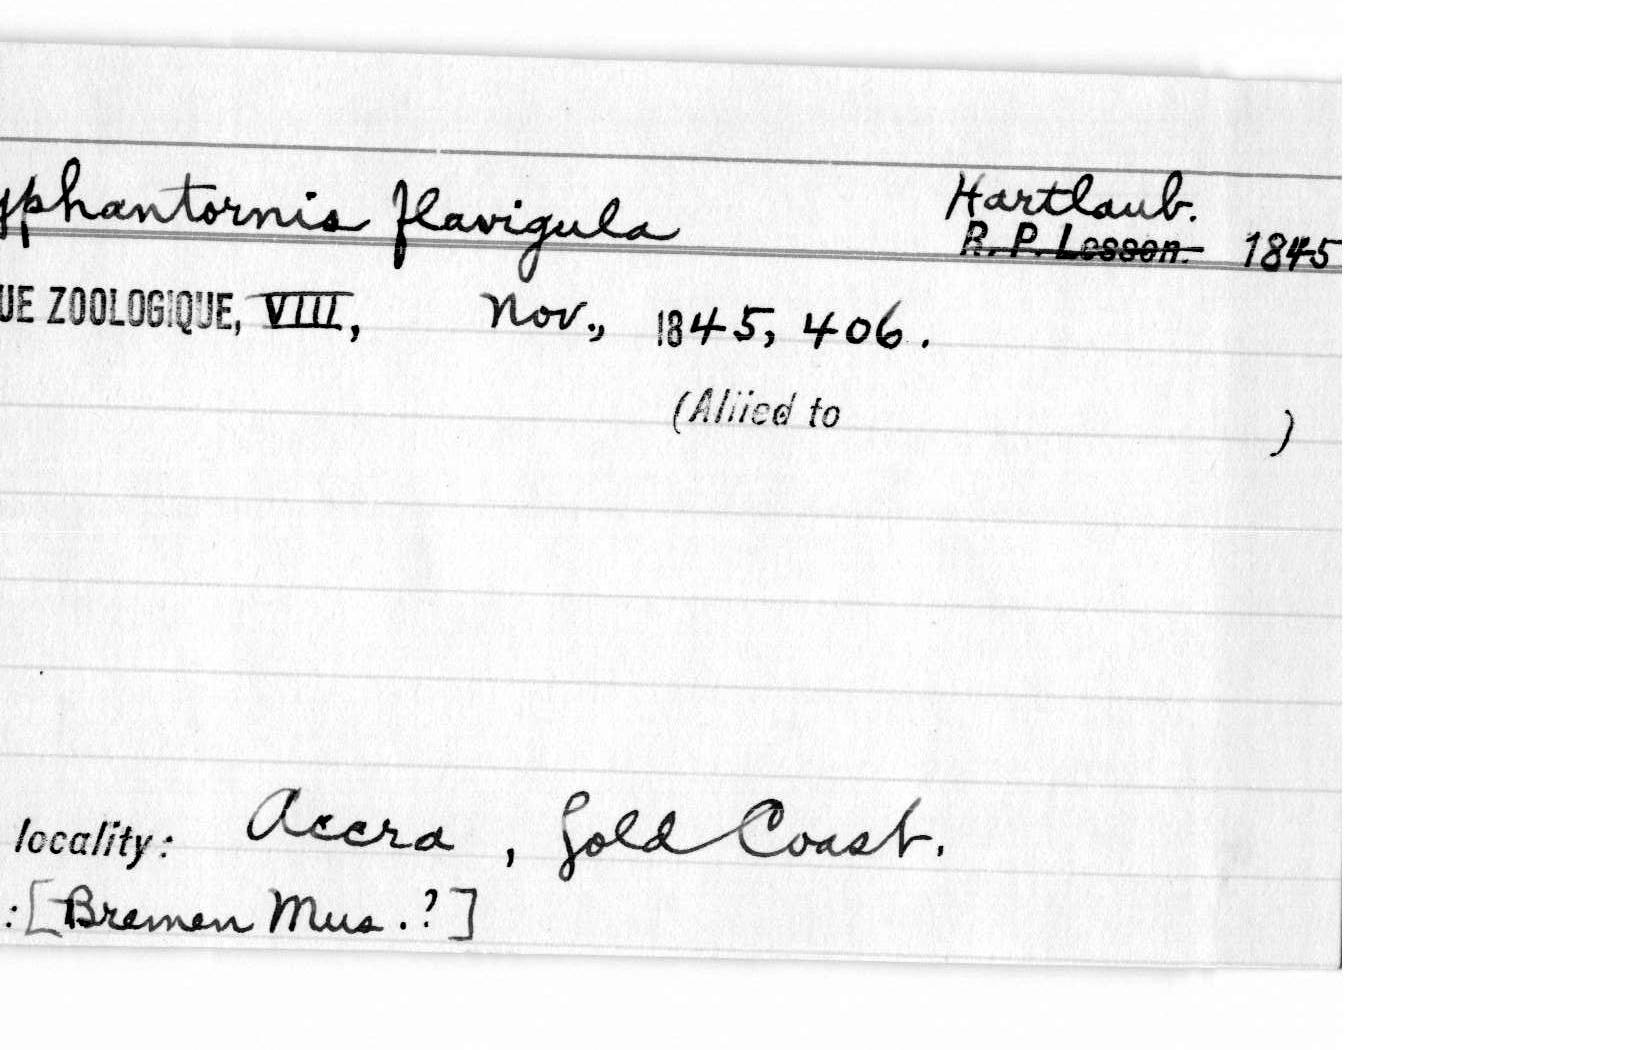 yphantornis flavigula Hartlaub.
R. P. Lesson. 1845
UE ZOOLOGIQUE, VIII, Nov., 1845, 406.
(Allied to )
locality: Accra, Gold Coast.
: [Bremen Mus.?]